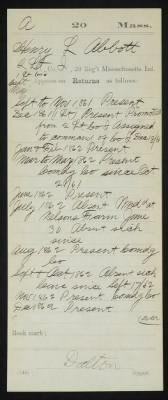 A 20 Mass.
Henry L Abbott
2 Lt, Co. I, 20 Reg't Massachusetts Inf.
Appears on Returns as follows:
Sept to Nov 1861 Present
Dec 1861 Present Promoted
from 2 Lt Co I Assigned
to command of Co
Jan & Feb 1862 Present
Mar to May 1862 Present
comdg Co since Oct
/61
June 1862 Present
July 1862 Absent Wd at
Nelsons Farm June
30 Absent sick
since
Aug 1862 Present comdg
Co
Sept & Oct 1862 Absent sick
leave since Sept 17/62
Nov 1862 Present comdg Co
Dec 1862 Present
(over)
Book mark:
Dalton
(546) Copyist.